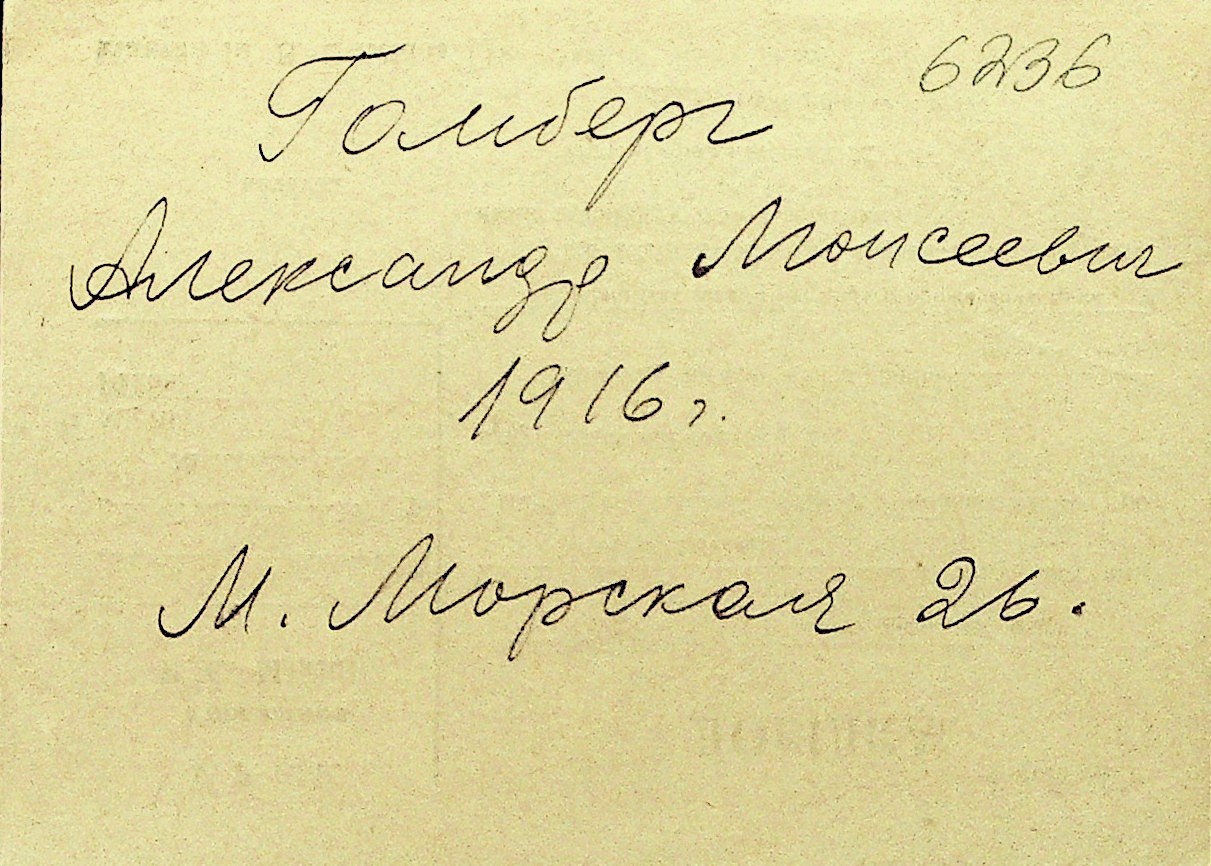 6236
Гомберг
Александр Моисеевич
1916 г.
М. Морская 26.